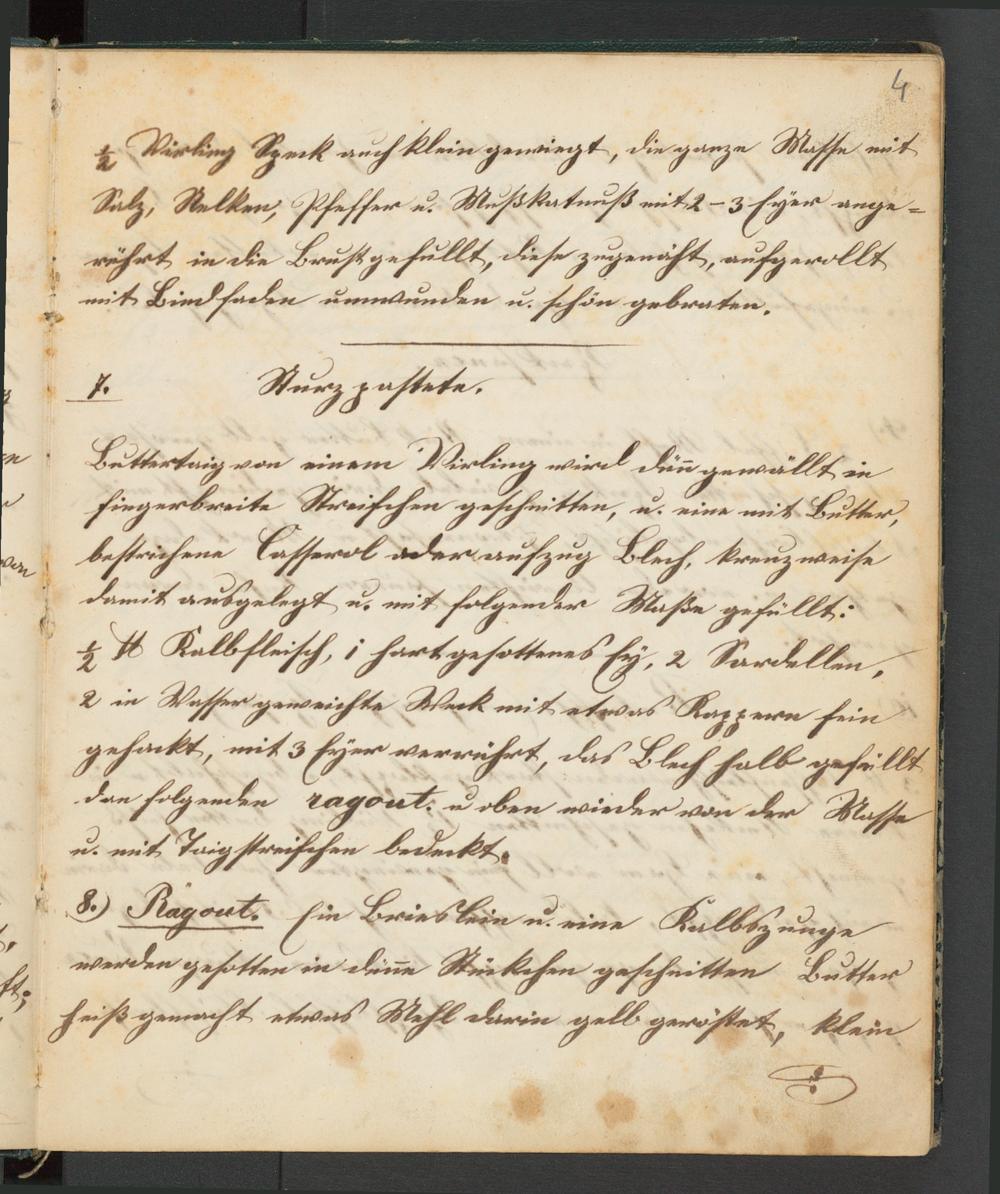 4
½ Virling Speck auch klein gewiegt, die ganze Masse mit
Salz, Nelken, Pfeffer u. Mußkatnuß mit 2-3 Eyer ange=
rührt in die Brust gefüllt, diese zugenäht, aufgerollt
mit Bindfaden umwunden u. schön gebraten.
7. Sturzpastete.
Buttertaig von einem Virling wird dün̄ gewällt in
fingerbreite Streifchen geschnitten, u. eine mit Butter,
bestrichene Casserol oder aufzug Blech, kreuzweise
damit ausgelegt u. mit folgender Maße gefüllt:
½ ℔ Kalbfleisch, 1 hart gesottenes Ey, 2 Sardellen,
2 in Wasser geweichte Weck mit etwas Kappern fein
gehackt, mit 3 Eyer verrührt, das Blech halb gefüllt
dan folgenden ragout. u oben wieder von der Masse
u. mit Taigstreifchen bedeckt.
8.) Ragout. Ein Brieslein u. eine Kalbszunge
werden gesotten in dün̄e Stückchen geschnitten Butter
heiß gemacht etwas Mehl darin gelb geröstet, klein